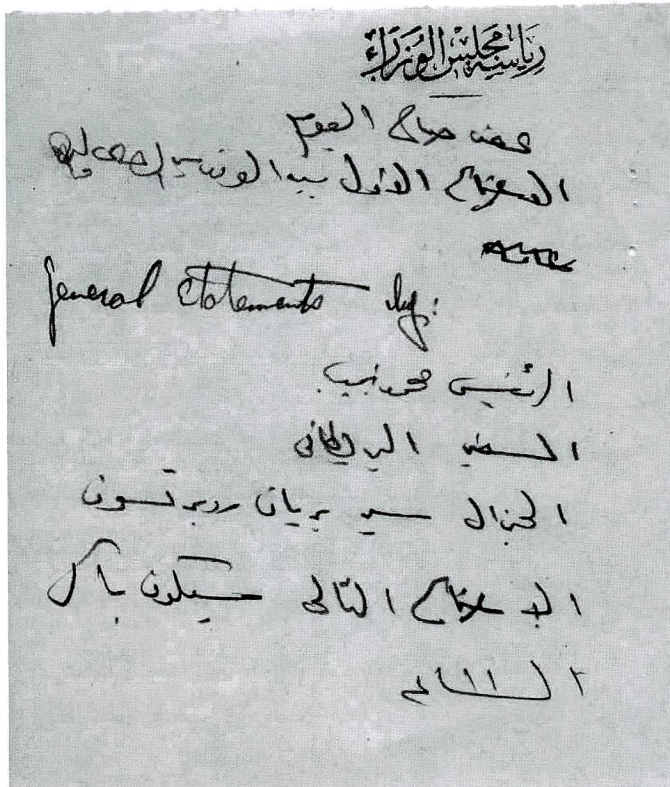 رياسة مجلس الوزراء
عقد صباح اليوم
الاجتماع الاول بين الوفدين المصرى
General Statements by:
الرئيس محمد نجيب
السفير البريطانى
الجنرال سير بريان روبرتسون
الاجتماع التالى سيكون باكر